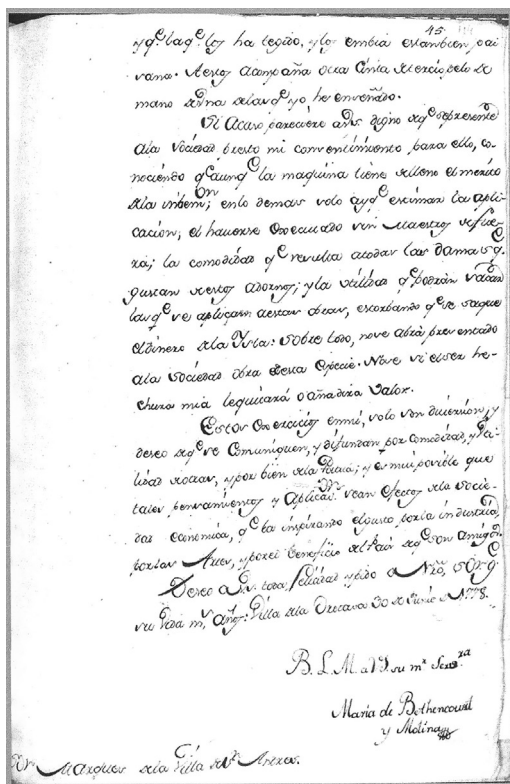 45
y q.e la q.e los ha tegido, y los embia es tambien Cai
vana. A estos acompaña otra Cinta de terciopelo de
mano de Una de las q.e yo he enseñado.
Si Acaso pareciere a VS. digno de q.e se presente
a la Sociedad presto mi consentimiento para ello, co-
nociendo q.e aunq.e la maquina tiene de lleno el merito
de la inben.on; en lo demas solo ay q.e estimar la apli-
cacion, el haverse Executado sin Maestros de fue-
ra; la comodidad q.e resulta a todas las Damas q.e
gustan de estos adornos; y la utilidad q.e podrán sacar
las q.e se apliquen a estas obras, estorbando q.e se saque
el dinero de la Ysla: sobre todo, no se abrá presentado
a la Sociedad obra de esta Especie. No se si el ser he-
chura mia le quitará o añadira Valor.
Estos Exercicios en mi, solo son diversion, y
deseo de q.e se Comuniquen, y difundan por comodidad, y
lidad de otras, y por bien de la Patria; y es mui posible que
tales pensamientos y Aplicac.on sean efectos de la Socie-
dad Economica, q.e ba inspirando el gusto por la industria,
por las Artes, y por el beneficio del Pais de q.e son Amigos.
Deseo a VS. toda felicidad y pido a N.ro S.or g.e
su Vida m.s años. Villa de la Orotava 30 de Junio de 1778.
B. L. M. a VS. su m.r Serv.ra
Maria de Bethencourt
y Molina
S.or Marques de la Villa de S.n Andres.